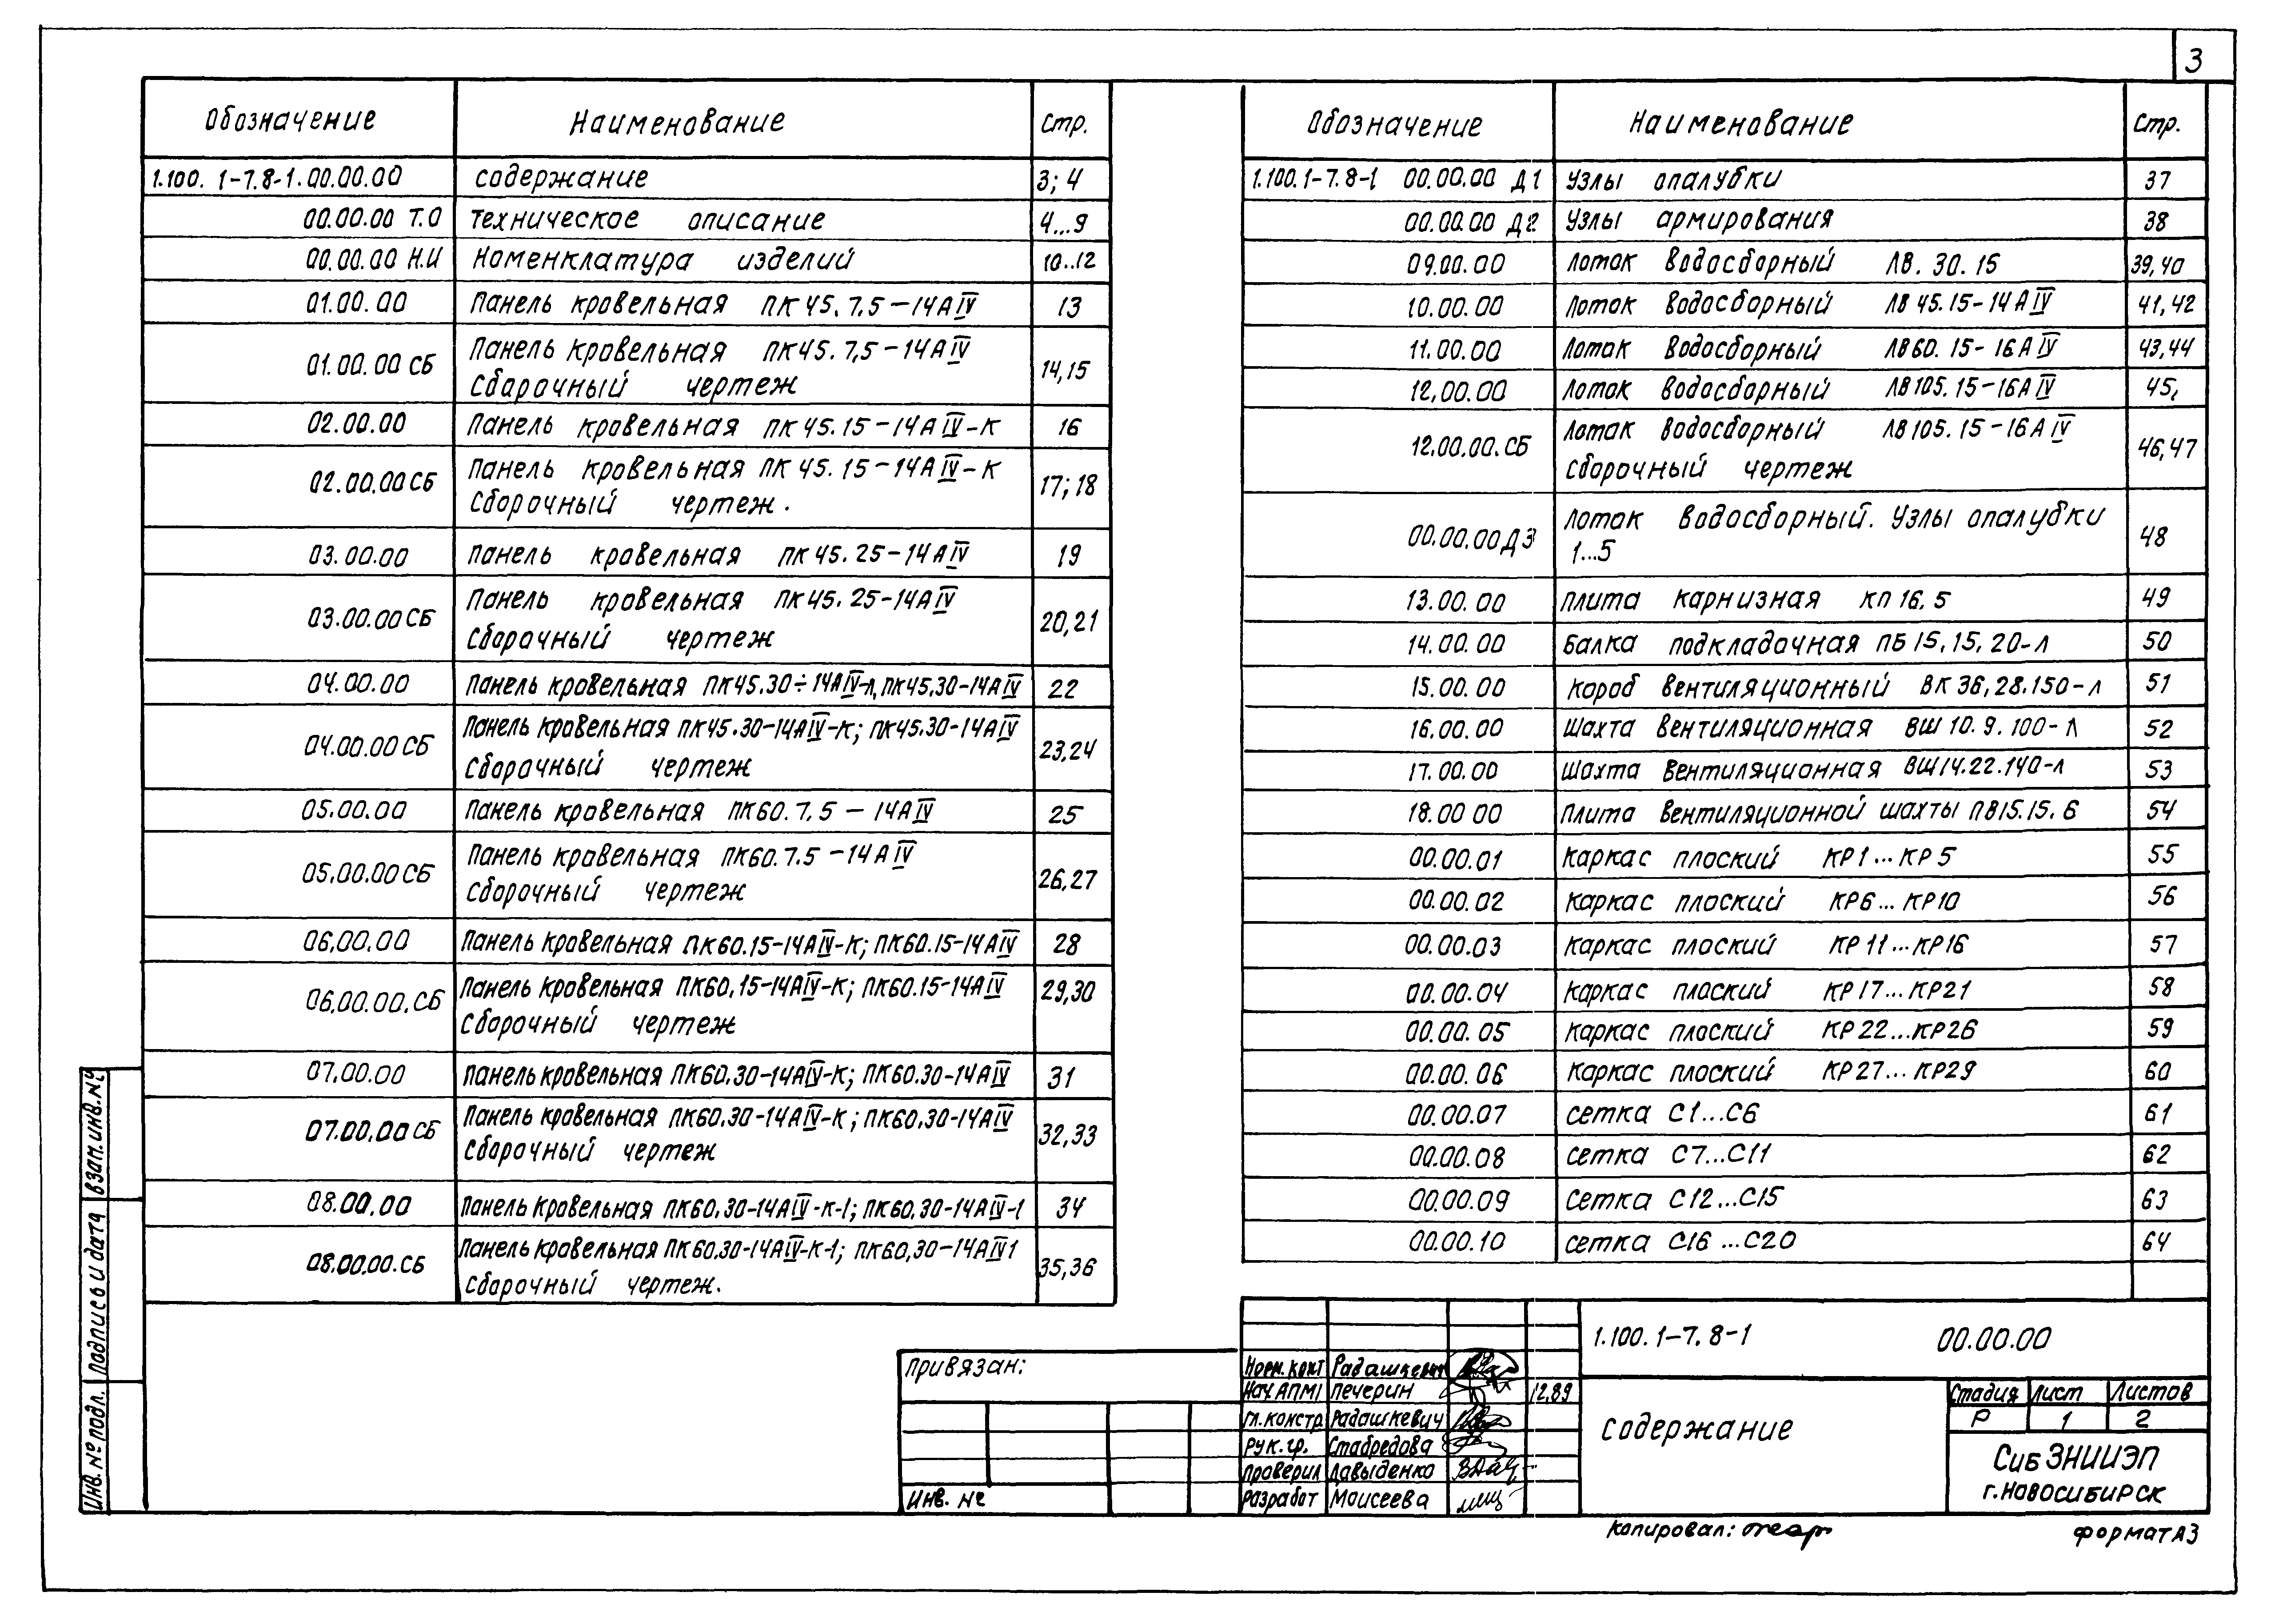 3
Обозначение Наименование Стр.
1.100. 1-7.8-1.00.00.00 содержание 3; 4
00.00.00 Т.О техническое описание 4...9
00.00.00 Н.И Номенклатура изделий 10..12
01.00.00 Панель кровельная ПК 45.7.5-14АIV 13
01.00.00 СБ Панель кровельная ПК45.7,5-14АIV 14,15
Сборочный чертеж
02.00.00 Панель кровельная ПК 45.15-14АIV-К 16
02.00.00 СБ Панель кровельная ПК 45.15-14АIV-К 17; 18
Сборочный чертеж.
03.00.00 Панель кровельная ПК 45.25-14АIV 19
03.00.00 СБ Панель кровельная ПК45.25-14АIV 20,21
Сборочный чертеж
04.00.00 Панель кровельная ПК45.30÷14АIV-Л, ПК45,30-14АIV 22
04.00.00 СБ Панель кровельная ПК45.30-14АIV-К; ПК45.30-14АIV 23,24
Сборочный чертеж
05.00.00 Панель кровельная ПК60.7.5 - 14АIV 25
05.00.00 СБ Панель кровельная ПК60.7.5-14АIV 26,27
Сборочный чертеж
06,00.00 Панель кровельная ПК60.15-14АIV-К; ПК60.15-14АIV 28
06,00.00.СБ Панель кровельная ПК60,15-14АIV-К; ПК60.15-14АIV 29,30
Сборочный чертеж
07.00.00 Панель кровельная ПК60.30-14АIV-К; ПК60.30-14АIV 31
07.00.00 СБ Панель кровельная ПК60,30-14АIV-К; ПК60,30-14АIV 32,33
Сборочный чертеж
08.00.00 Панель кровельная ПК60,30-14АIV-К-1; ПК60,30-14АIV-1 34
08.00.00.СБ Панель кровельная ПК60,30-14АIV-К-1; ПК60,30-14АIV1 35,36
Сборочный чертеж.
Обозначение Наименование Стр.
1.100.1-7.8-1 00.00.00 Д1 Узлы опалубки 37
00.00.00 Д2 Узлы армирования 38
09.00.00 Лоток водосборный ЛВ.30.15 39,40
10.00.00 Лоток водосборный ЛВ 45.15-14АIV 41,42
11.00.00 Лоток водосборный ЛВ60.15-16АIV 43,44
12,00.00 Лоток водосборный ЛВ105.15-16АIV 45,
12.00.00.СБ Лоток водосборный ЛВ105.15-16АIV 46,47
сборочный чертеж
00.00.00 Д3 Лоток водосборный. Узлы опалубки 48
1...5
13.00.00 Плита карнизная КП 16.5 49
14.00.00 Балка подкладочная ПБ 15,15,20-Л 50
15.00.00 Короб вентиляционный ВК 36,28.150-Л 51
16.00.00 Шахта вентиляционная ВШ 10.9.100-Л 52
17.00.00 Шахта вентиляционная ВШ14.22.140-Л 53
18.00 00 Плита вентиляционной шахты ПВ15.15.6 54
00.00.01 Каркас плоский КР1...КР5 55
00.00.02 Каркас плоский КР6...КР10 56
00.00.03 Каркас плоский КР11...КР16 57
00.00.04 Каркас плоский КР17...КР21 58
00.00.05 Каркас плоский КР22...КР26 59
00.00.06 Каркас плоский КР27...КР29 60
00.00.07 сетка С1...С6 61
00.00.08 сетка С7...С11 62
00.00.09 сетка С12...С15 63
00.00.10 сетка С16...С20 64
Взам.инв.№
Подпись и дата
Инв.№ подл.
Привязан:
Инв. №
Норм.конт Радашкевич
Нач.АПМ1 Печерин 12,89
Гл.констр Радашкевич
Рук.гр. Стабредова
Проверил Давыденко
Разработ Моисеева
1.100.1-7.8-1 00.00.00
содержание
Стадия Лист Листов
Р 1 2
СибЗНИИЭП
г.Новосибирск
Копировал:
Формат А3